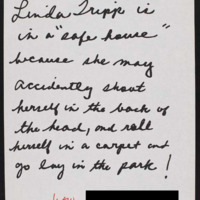 Linda Tripp is
in a "safe house"
because she may
accidently shoot
herself in the back of
the head, and roll
herself in a carpet and
go lay in the park!